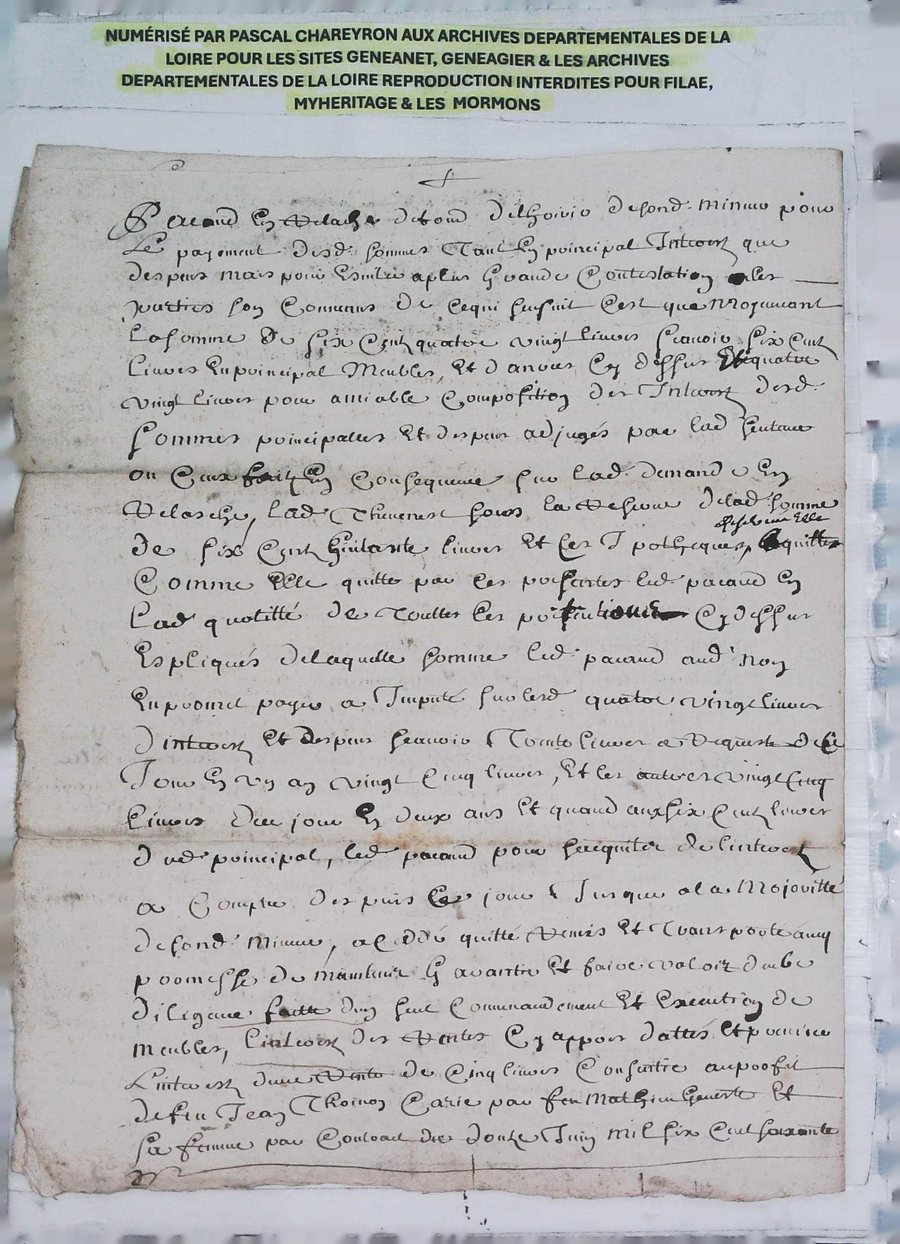 NUMÉRISÉ PAR PASCAL CHAREYRON AUX ARCHIVES DEPARTEMENTALES DE LA
LOIRE POUR LES SITES GENEANET, GENEAGIER & LES ARCHIVES
DEPARTEMENTALES DE LA LOIRE REPRODUCTION INTERDITES POUR FILAE,
MYHERITAGE & LES MORMONS
en de fond de sond. mineur pour
Le payement desd. sommes Tant En principal Interest que
despens mais pour Esviter a plus Grande Contestation les
parties son Convenus de ce qui sensuit Cest que Moyennant
La somme de six Cent quatre vingt livres scavoir six Cent
livres En principal Meubles, Et danrées Cy dessus Et quatre
vingt livres pour amiable Composition des Interest desd.
sommes principalles Et despans adjugés par lad sentence
ou Ceux faits En Consequence sur lad. demande En
Relasche, lad. Thevenest sous la Reserve de lad. somme
de six Cent livres Et ses Ipotheques, quitte
Comme Elle quitte par ces presantes led. pacaud En
lad quotitté de Touttes les Cy dessus
Expliqués de laquelle somme led. pacaud aud. Nom
En promet payer a Imputé sur lesd quatre vingt livres
dinterest Et despens scavoir Trente livres a Requeste de Ce
Jour En un an vingt Cinq livres, Et les autres vingt Cinq
livres dece jour En deux ans Et quand aux six Cent livres
dud principal, led. pacaud pour sacquiter de linterest
a Compter despuis Ce jour Jusque a la Majoritté
desond. Mineur, a ceddé quitté Remis Et Transporté avec
promesse de maintenir Garantir Et faire valoir
diligence faitte dun seul Commandement Et Execution de
meubles, linterest des Rentes Cy appres dattés Et premiere
Linterest dune Rente de Cinq livres Consuitte au proffit
de feu Jean Thoinon par feu Mathieu Et
sa femme par Contract du douze Juin mil six Cent soixante